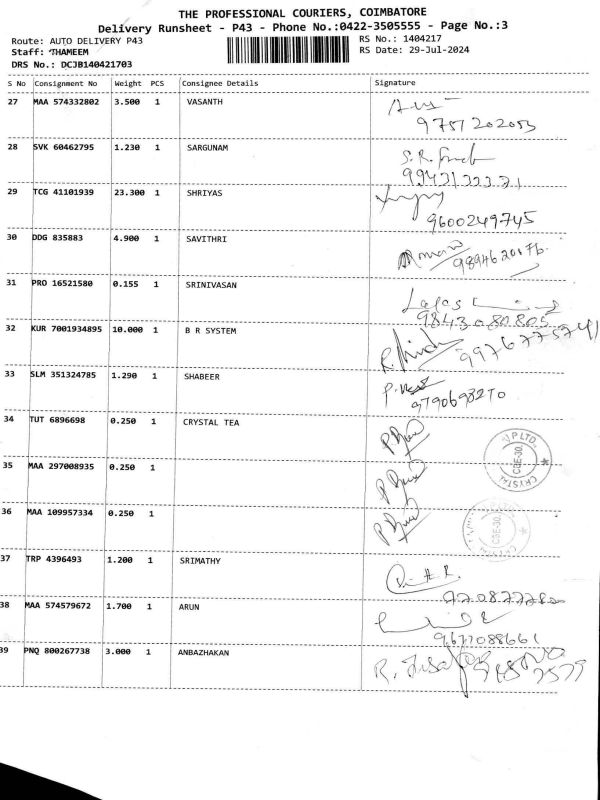 THE PROFESSIONAL COURIERS, COIMBATORE
Delivery Runsheet - P43 - Phone No.:0422-3505555 - Page No.:3
Route: AUTO DELIVERY P43 RS No.: 1404217
Staff: THAMEEM RS Date: 29-Jul-2024
DRS No.: DCJB140421703
S No Consignment No Weight PCS Consignee Details Signature
27 MAA 574332802 3.500 1 VASANTH
9751202053
28 SVK 60462795 1.230 1 SARGUNAM
29 TCG 41101939 23.300 1 SHRIYAS
9600249745
30 DDG 835883 4.900 1 SAVITHRI
31 PRO 16521580 0.155 1 SRINIVASAN
9843080805
32 KUR 7001934895 10.000 1 B R SYSTEM
33 SLM 351324785 1.290 1 SHABEER
34 TUT 6896698 0.250 1 CRYSTAL TEA
35 MAA 297008935 0.250 1
36 MAA 109957334 0.250 1
37 TRP 4396493 1.200 1 SRIMATHY
38 MAA 574579672 1.700 1 ARUN
9677088661
39 PNQ 800267738 3.000 1 ANBAZHAKAN